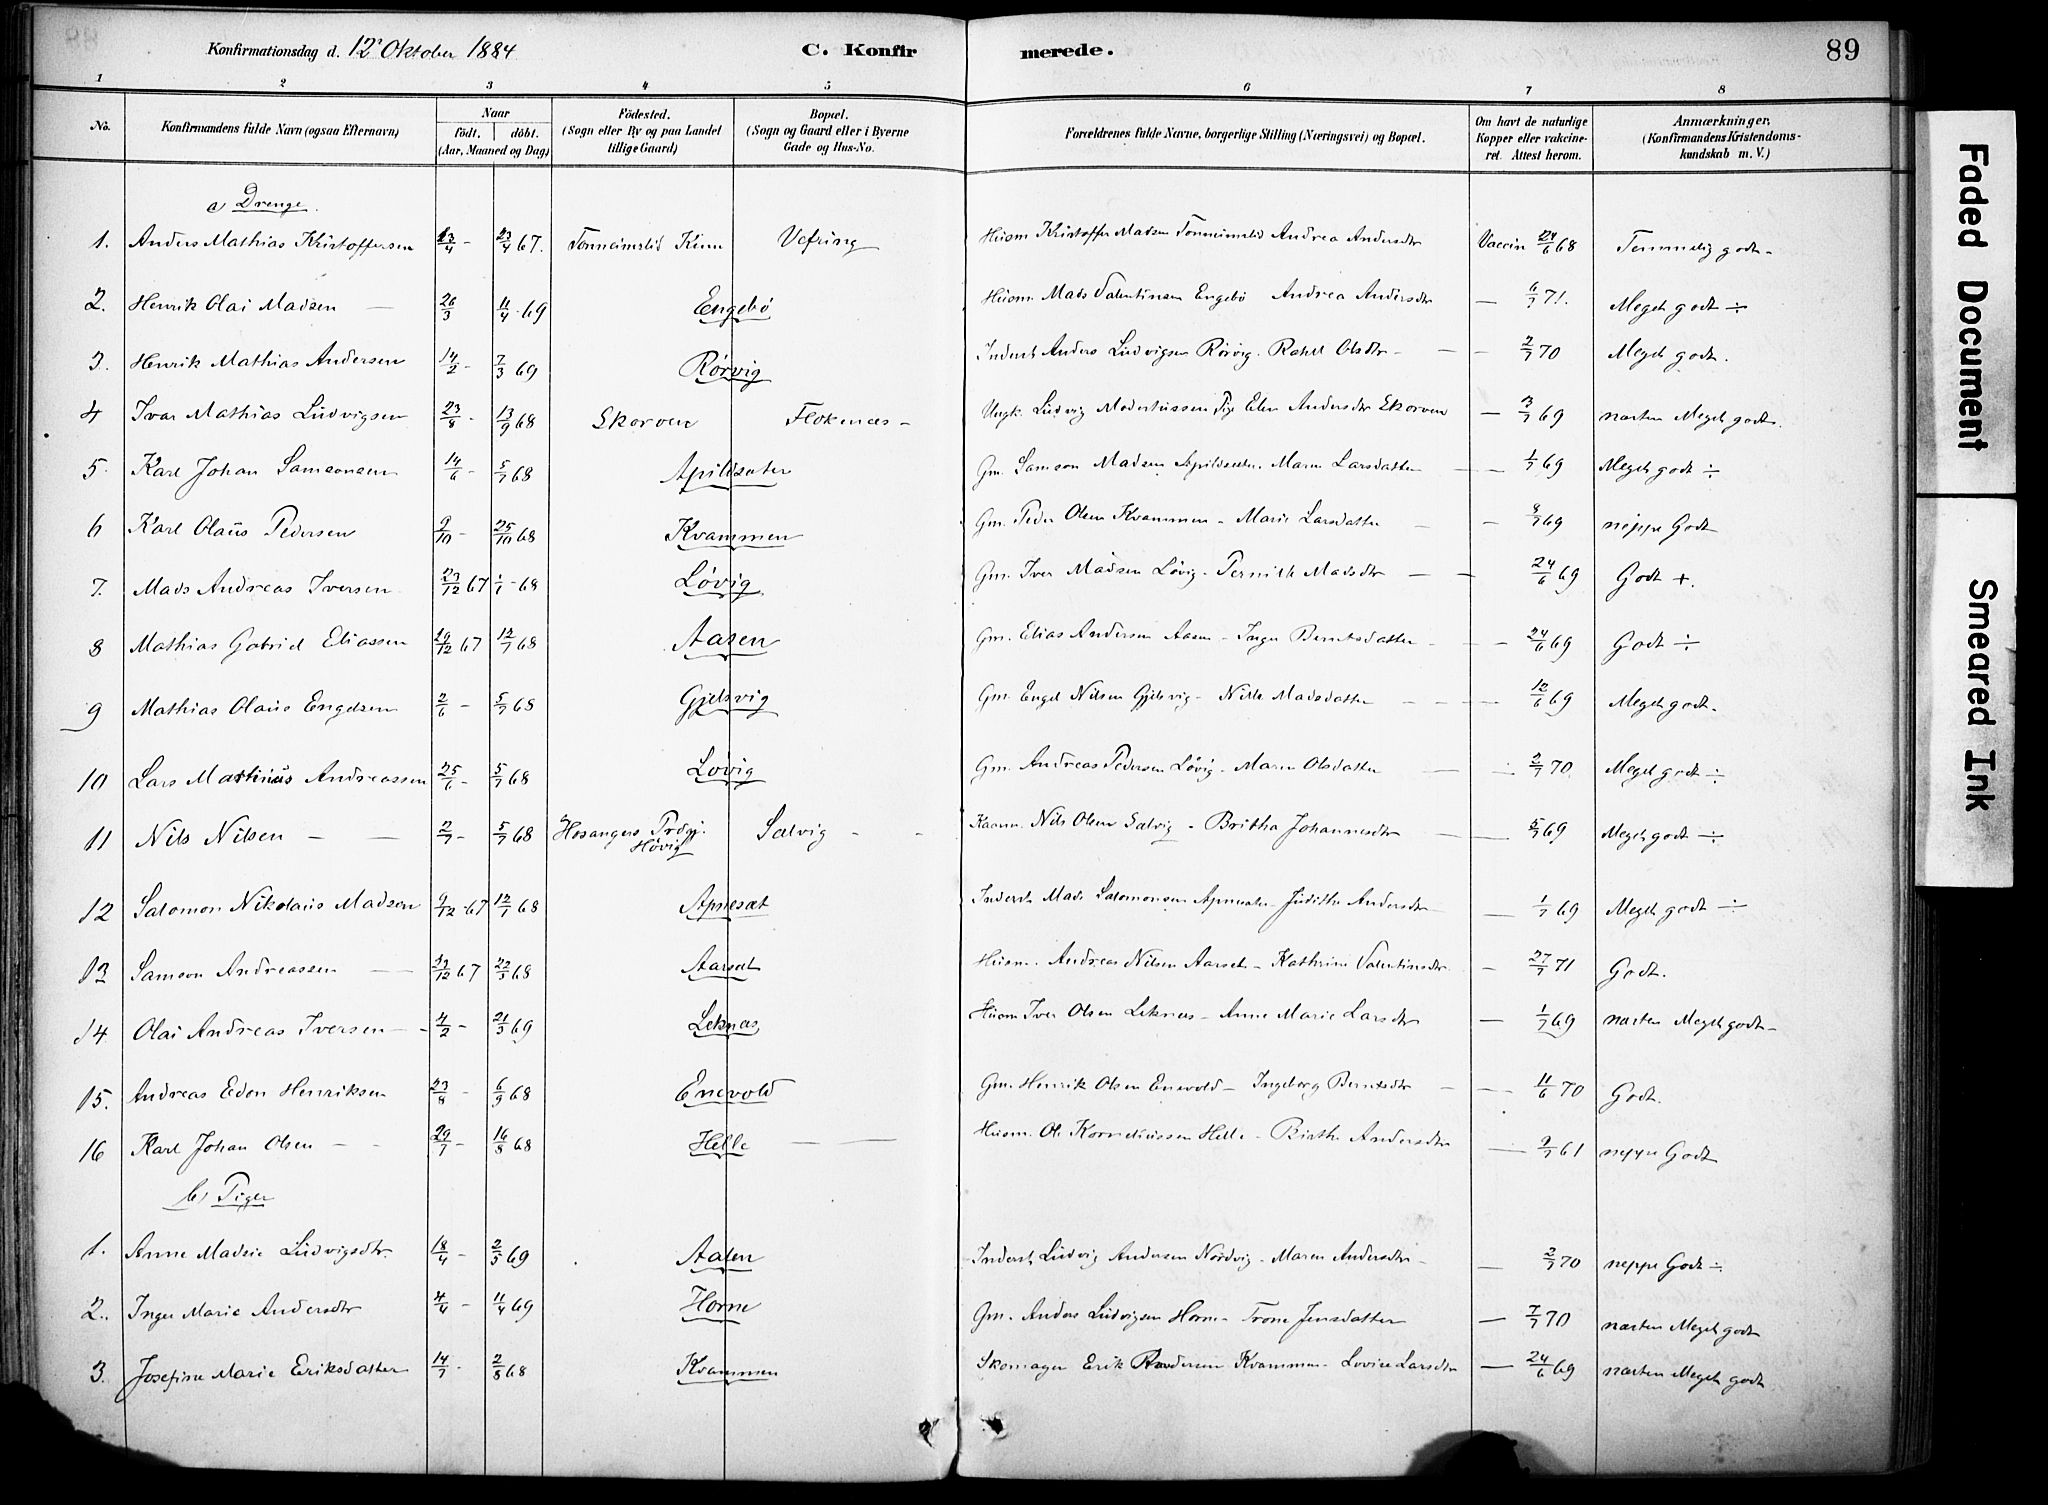 Konfirmationsdag d. 12' Oktober 1884 C. Konfirmerede. 89
1 2 3 4 5 6 7 8
No. Konfirmandens fulde Navn (ogsaa Efternavn) Naar födt. döbt. (Aar, Maaned og Dag) Födested. (Sogn eller By og paa Landet tillige Gaard) Bopæl. (Sogn og Gaard eller i Byerne Gade og Hus-No. Forældrenes fulde Navne, borgerlige Stilling (Næringsvei) og Bopæl. Om havt de naturlige Kopper eller vakcineret. Attest herom. Anmærkninger, (Konfirmandens Kristendomskundskab m. V.)
a) Drenge.
1. Anders Mathias Kristoffersen 23/4 - 23/4 67. Tonneimslid Kinn Vefring Husm Kristoffer Madsen Tonneimslid Andrea Andersdtr Vaccin 24/6 68 Temmelig godt -
2. Henrik Olai Madsen — 26/3 11/4 69 Engebö Husm. Mads Valentinsen Engebö Andrea Andersdtr — 6/7 71. Meget godt ÷
3. Henrik Mathias Andersen 14/2 - 7/3 69 Rörvig Inderst Anders Ludvigsen Rörvig. Rahel Olsdtr — — 2/7 70 Meget godt.
4 Ivar Mathias Ludvigsen 23/8 - 13/9 68 Skorven Flokenæs - Ungk. Ludvig Pige Elen Andersdtr Skorven — 3/7 69 næsten Meget godt.
5. Karl Johan Samsonsen 14/6 - 5/7 68 Apildsæter Gm. Samson Madsen Apildsæter. Maren Larsdatter — 1/7 69 Meget godt ÷
6 Karl Olaus Pedersen 9/10 - 25/10 68 Kvammen Gm. Peder Olsen Kvammen - Marie Larsdatter — 8/7 69 neppe Godt
7. Mads Andreas Iversen 23/12 67 1/1 - 68 Lövig Gm. Iver Madsen Lövig - Pernille Madsdtr — — 24/6 69 Godt +.
8 Mathias Gabriel Eliassen 29/12 67 12/7 68 Aasen Gm. Elias Andersen Aasen - Inger Berntsdatter — 24/6 69 Godt ÷
9 Mathias Olaus Engelsen 2/6 - 5/7 68 Gjelsvig Gm. Engel Nilsen Gjelsvig - Nille Madsdatter — 12/6 69 Meget godt.
10 Lars Martinus Andreassen 25/6 - 5/7 68 Lövig Gm. Andreas Pedersen Lövig - Maren Olsdatter — 2/7 70 Meget godt ÷
11 Nils Nilsen — — 2/7 - 5/7 68 Hosangers Prgj. Hövig Sælvig - - Nils Olsen Sælvig - Britha Johannesdtr — 5/7 69 Meget godt ÷
12 Salomon Nikolaus Madsen 9/12 - 67 12/1 68 Apnesæt Inderst Mads Salomonsen Apnesæter Judithe Andersdtr — 1/7 69 Meget godt ÷
13 Samson Andreassen — 67 22/3 68 Aarsæt Husm. Andreas Nilsen Aarset - Kathrine Valentinsdtr. — 27/7 71 Godt.
14 Olai Andreas Iversen - 4/2 - 21/3 69 Leknæs Husm Iver Olsen Leknæs - Anne Marie Larsdtr — 1/7 69 næsten Meget godt -
15. Andreas Edon Henriksen 23/8 - 6/9 68 Enevold Gm. Henrik Olsen Enevold - Ingeborg Berntsdtr — 11/6 70 Godt.
16 Karl Johan Olsen - - 29/7 - 16/8 68 Helle — — Husm. Ole Korneliussen Helle - Birthe Andersdtr — 9/7 61 neppe Godt
b) Piger
1. Anne Madsie Ludvigsdtr. 18/4 - 2/5 69 Aalen Inderst Ludvig Andersen Nordvig - Maren Andersdtr — 2/7 70 neppe Godt ÷
2. Inger Marie Andersdtr 4/4 - 11/4 69 Horne Gm. Anders Ludvigsen Horne - Trone Jensdatter — 7/7 70 næsten Meget godt
3. Josefine Marie Eriksdatter 14/7 - 2/8 68 Kvammen Skomager Erik Kvammen - Lovise Larsdtr — 24/6 69 næsten Meget godt
Faded Document
Smeared Ink